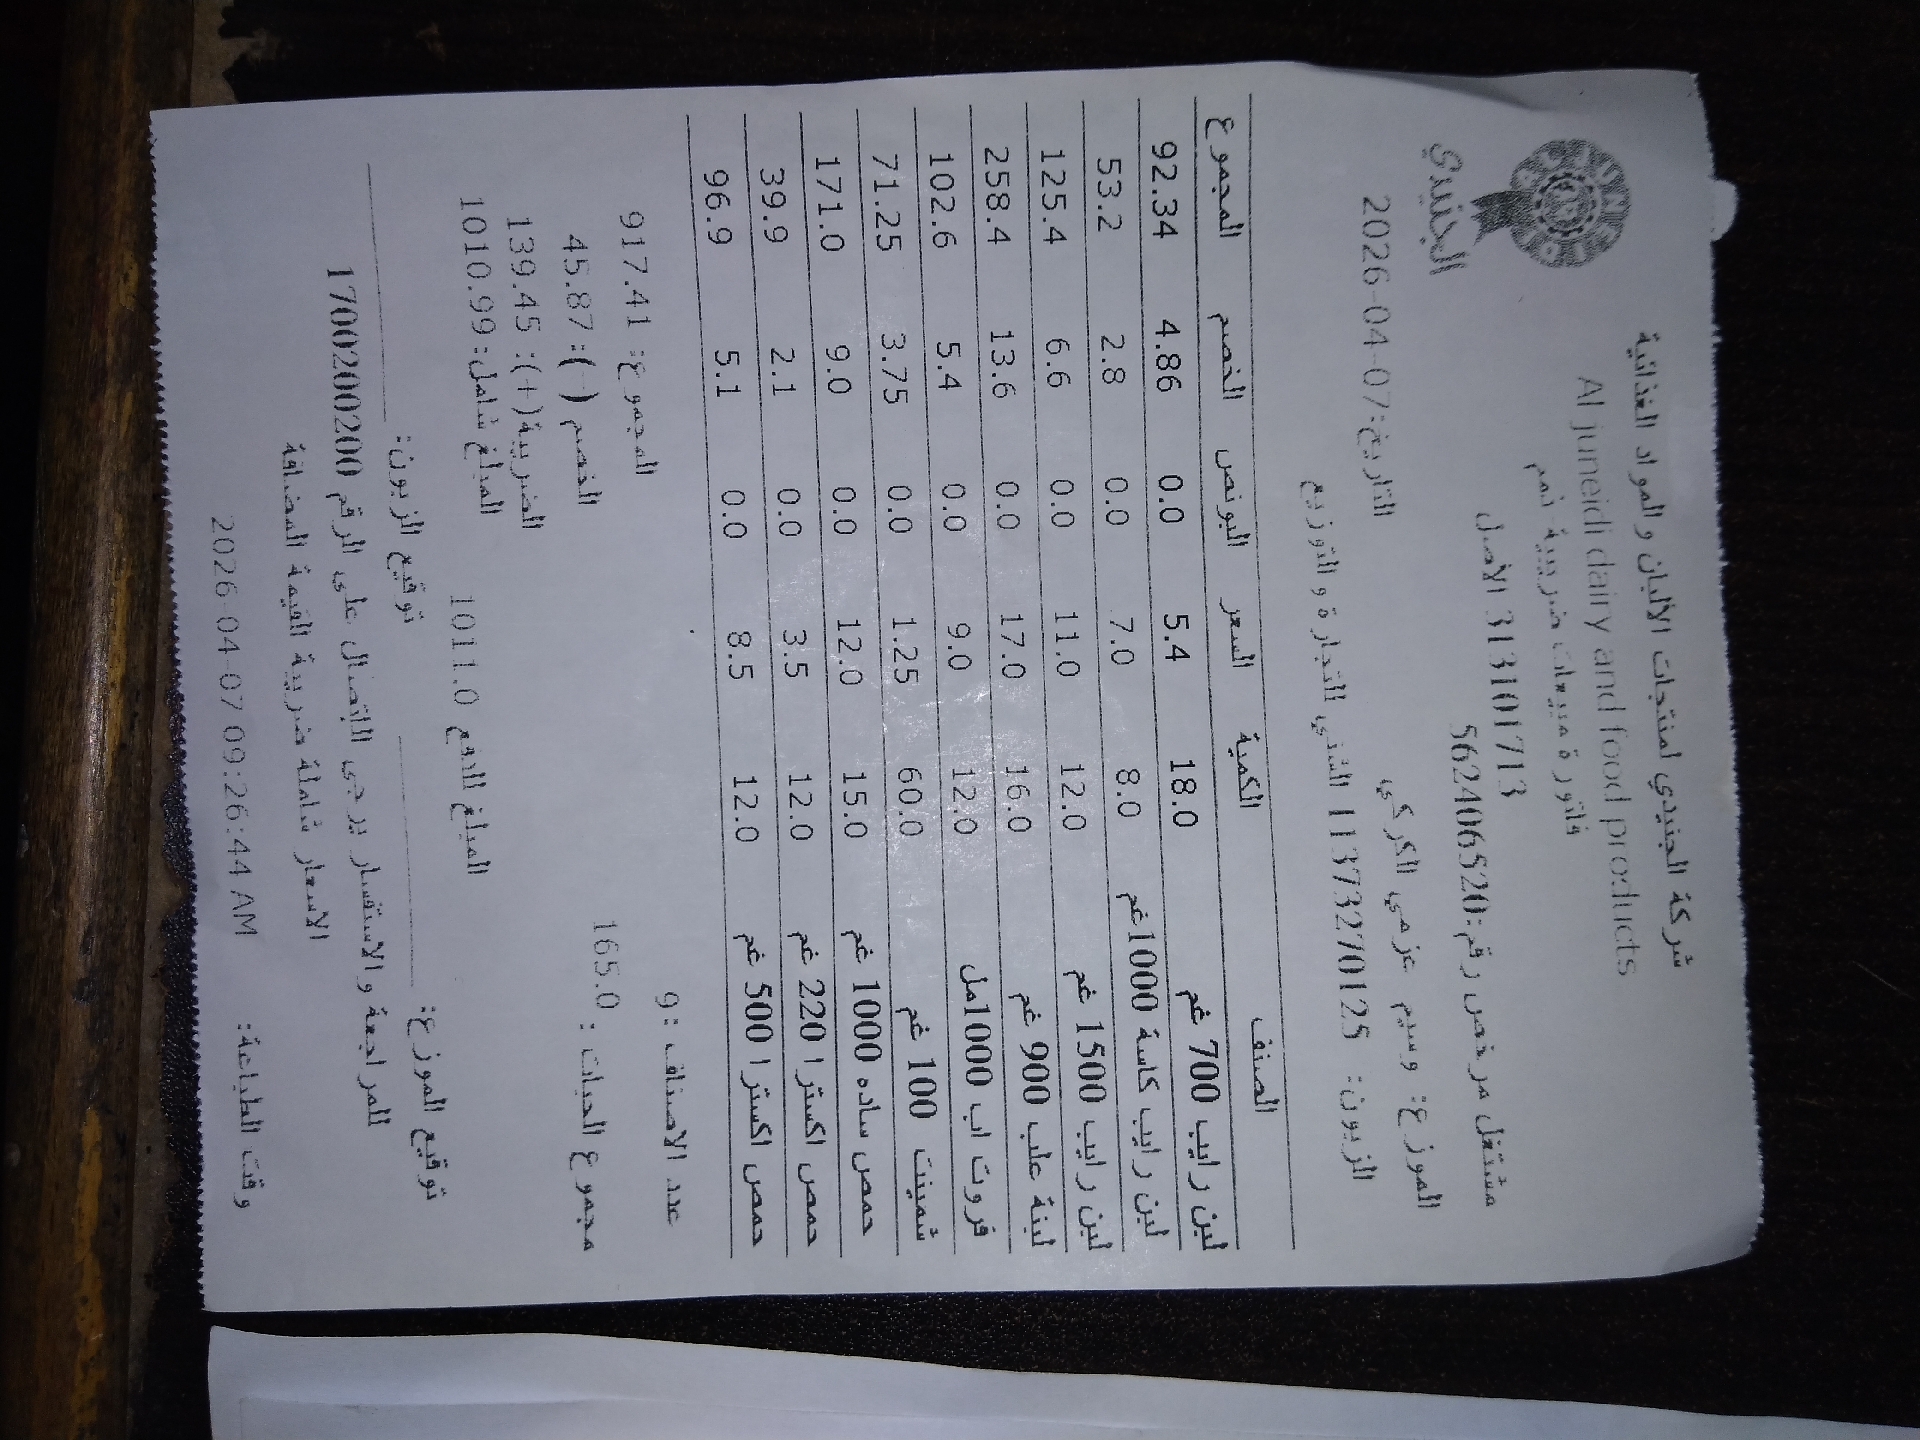 الجنيدي
شركة الجنيدي لمنتجات الألبان و المواد الغذائية
Al juneidi dairy and food products
فاتورة مبيعات ضريبية ذمم
313101713 الأصل
مشتغل مرخص رقم:562406520
الموزع: وسيم عزمي الكركي
التاريخ:2026-04-07
الزبون: 11373270125 للتجارة و التوزيع
الصنف الكمية السعر البونص الخصم المجموع
لبن رايب 700 غم 18.0 5.4 0.0 4.86 92.34
لبن رايب كاسة 1000غم 8.0 7.0 0.0 2.8 53.2
لبن رايب 1500 غم 12.0 11.0 0.0 6.6 125.4
لبنة علب 900 غم 16.0 17.0 0.0 13.6 258.4
فروت اب 1000مل 12.0 9.0 0.0 5.4 102.6
شمينت 100 غم 60.0 1.25 0.0 3.75 71.25
حمص ساده 1000 غم 15.0 12.0 0.0 9.0 171.0
حمص اكسترا 220 غم 12.0 3.5 0.0 2.1 39.9
حمص اكسترا 500 غم 12.0 8.5 0.0 5.1 96.9
عدد الاصناف :9 المجموع: 917.41
مجموع الحبات : 165.0 الخصم (-): 45.87
الضريبة(+): 139.45
المبلغ شامل: 1010.99
المبلغ للدفع 1011.0
توقيع الموزع: توقيع الزبون:
للمراجعة و الاستفسار يرجى الاتصال على الرقم 1700200200
الاسعار شاملة ضريبة القيمة المضافة
وقت الطباعة: 2026-04-07 09:26:44 AM